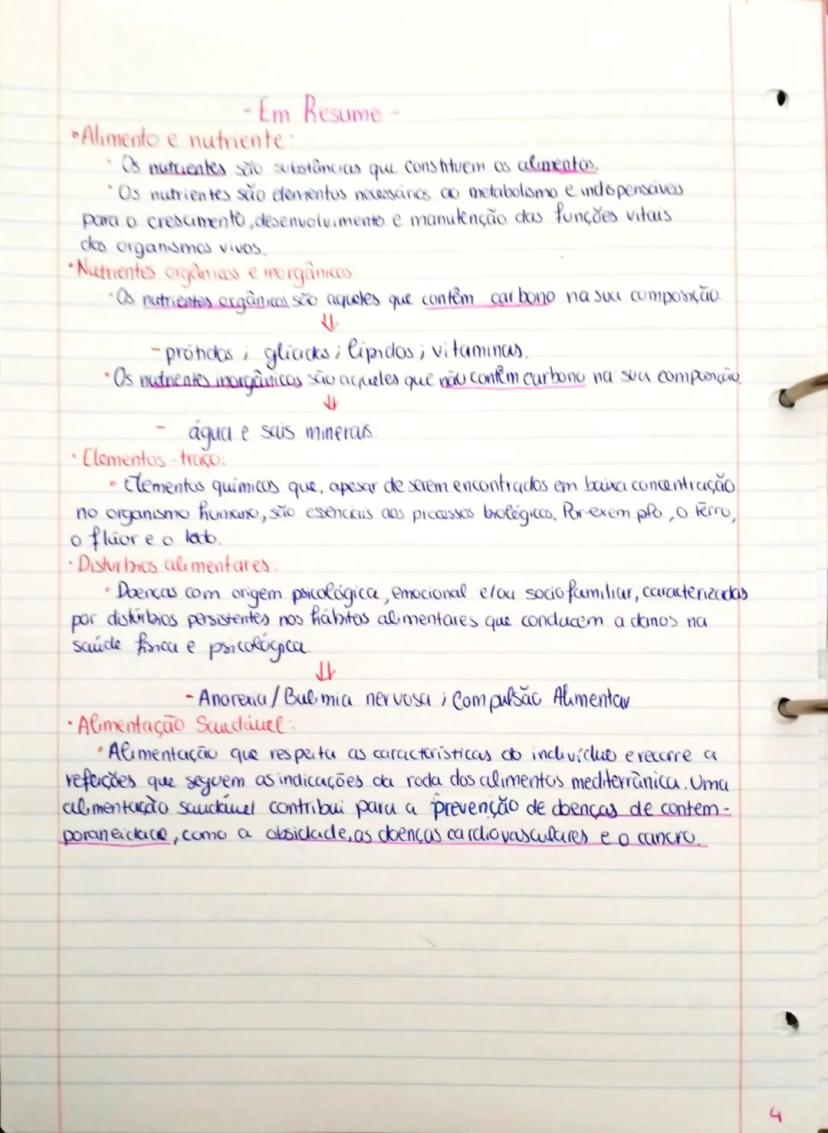 - Em Resumo -
• Alimento e nutriente:
• Os nutrientes são substâncias que constituem os alimentos.
• Os nutrientes são elementos necessários ao metabolismo e indispensáveis
para o crescimento, desenvolvimento e manutenção das funções vitais
dos organismos vivos.
• Nutrientes orgânicos e inorgânicos
• Os nutrientes orgânicos são aqueles que contêm carbono na sua composição.
⇓
- prótidos; glícidos; lípidos; vitaminas.
• Os nutrientes inorgânicos são aqueles que não contêm carbono na sua composição.
⇓
- água e sais minerais.
• Elementos-traço:
• Elementos químicos que, apesar de serem encontrados em baixa concentração
no organismo humano, são essenciais aos processos biológicos. Por exemplo, o Ferro,
o flúor e o Iodo.
• Distúrbios alimentares:
• Doenças com origem psicológica, emocional e/ou sociofamiliar, caracterizadas
por distúrbios persistentes nos hábitos alimentares que conduzem a danos na
saúde física e psicológica.
⇓
- Anorexia/Bulimia nervosa; Compulsão Alimentar
• Alimentação Saudável:
• Alimentação que respeita as características do indivíduo e recorre a
refeições que seguem as indicações da roda dos alimentos mediterrânica. Uma
alimentação saudável contribui para a prevenção de doenças de contem-
poraneidade, como a obsidade, as doenças cardiovasculares e o cancro.
4